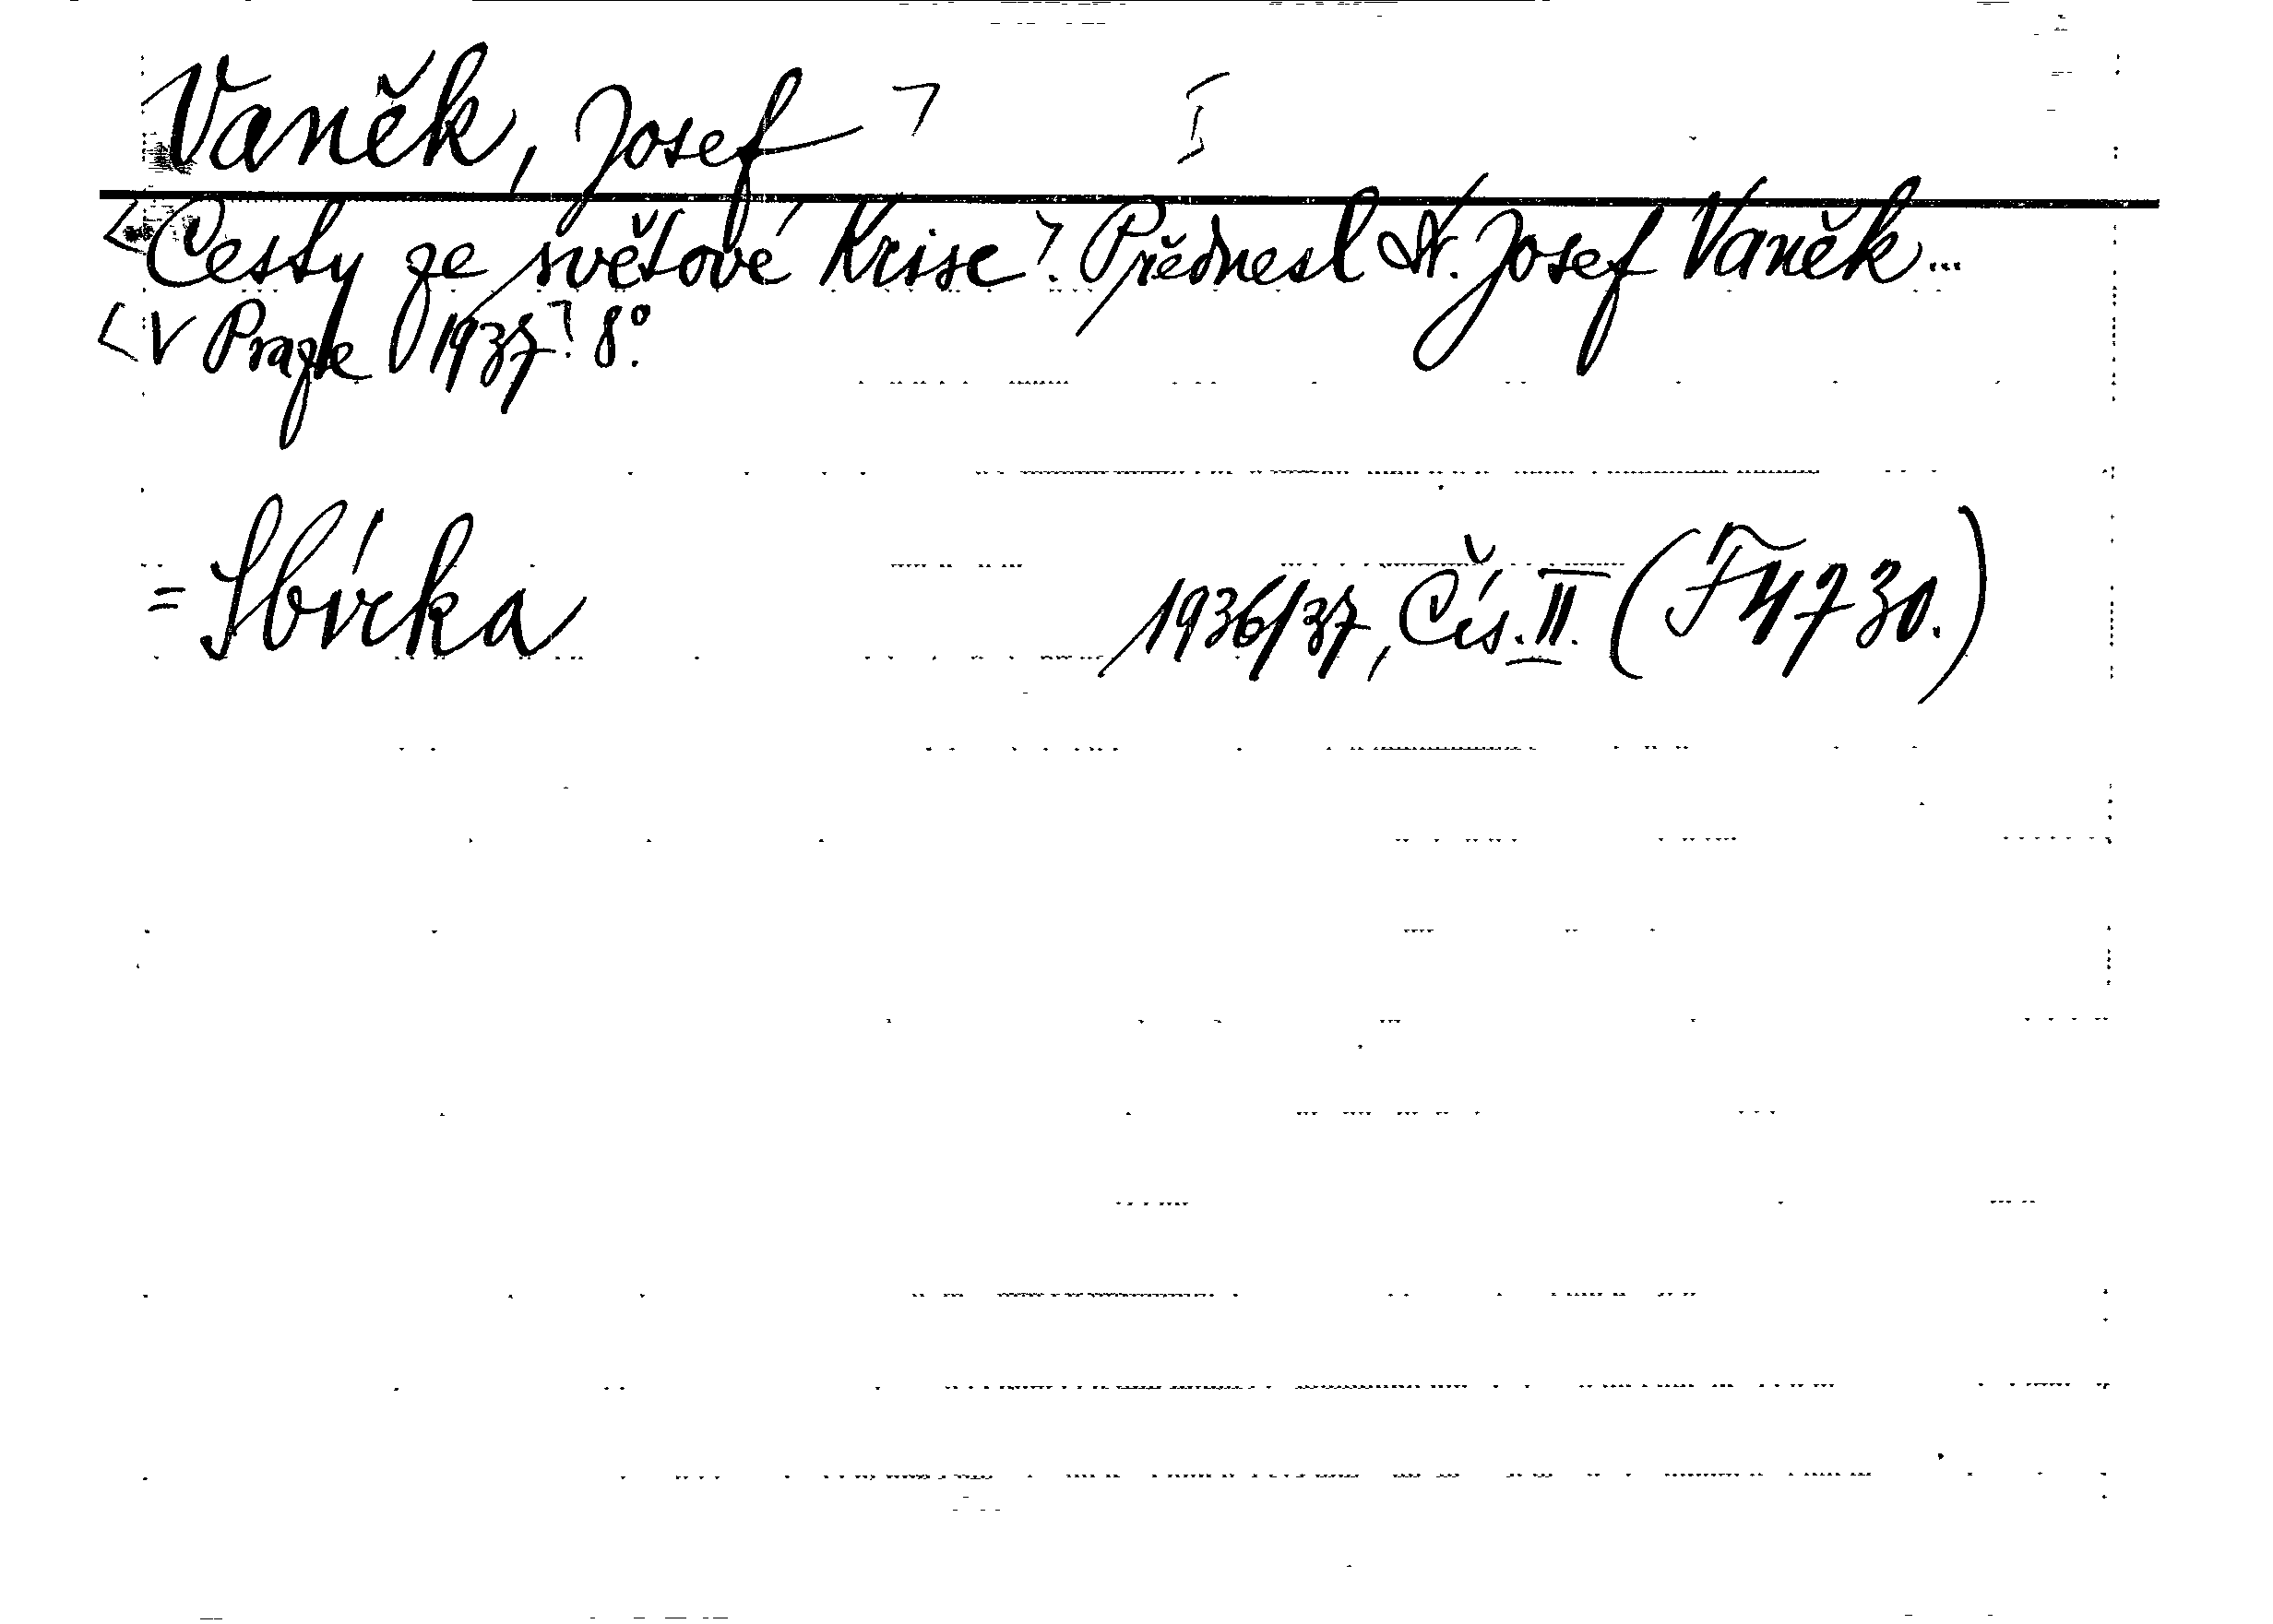 Vaněk, Josef ⌉ I
<Cesty ze světové Krise⌉. Přednesl Dr. Josef Vaněk...
<V Praze 1937⌉. 8°.
= Sbírka 1936/37, Čís. II. (F4730.)